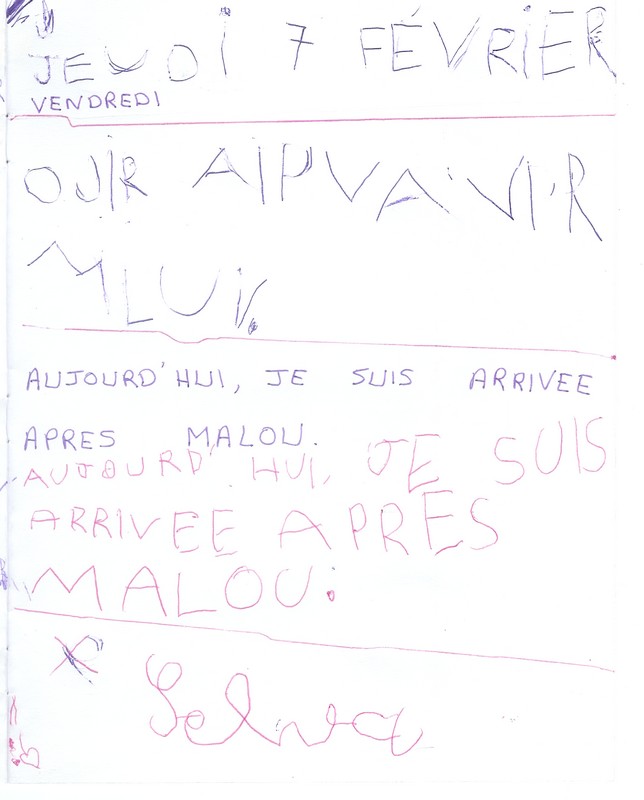 JEUDI 7 FÉVRIER
VENDREDI
OJIR AIPVA'VI'R
MLUV.
AUJOURD'HUI, JE SUIS ARRIVEE
APRES MALOU.
AUJOURD'HUI, JE SUIS
ARRIVEE APRES
MALOU.
Selva